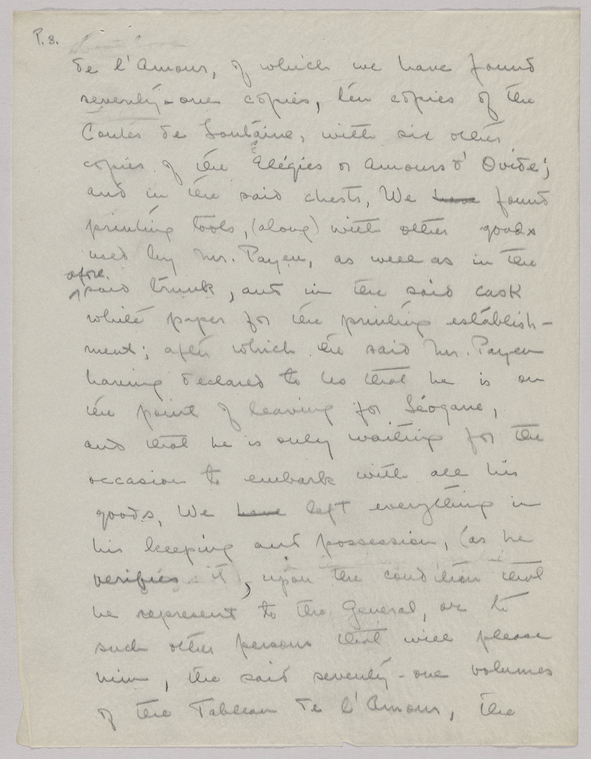 P. 3.
de l'Amour, of which we have found
seventy-one copies, ten copies of the
Contes de Lontaine, with six other
copies of the Elégies or Amours d'Ovide;
and in the said chests, We have found
printing tools, (along) with other goods
used by Mr. Payen, as well as in the
afore.
said trunk, and in the said cask
white paper for the printing establish-
ment; after which the said Mr. Payen
having declared to Us that he is on
the point of leaving for Léogane,
and that he is only waiting for the
occasion to embark with all his
goods, We have left everything in
his keeping and possession, (as he
verifies it), upon the condition that
he represent to the General, or to
such other persons that will please
him, the said seventy-one volumes
of the Tableau de l'Amour, the